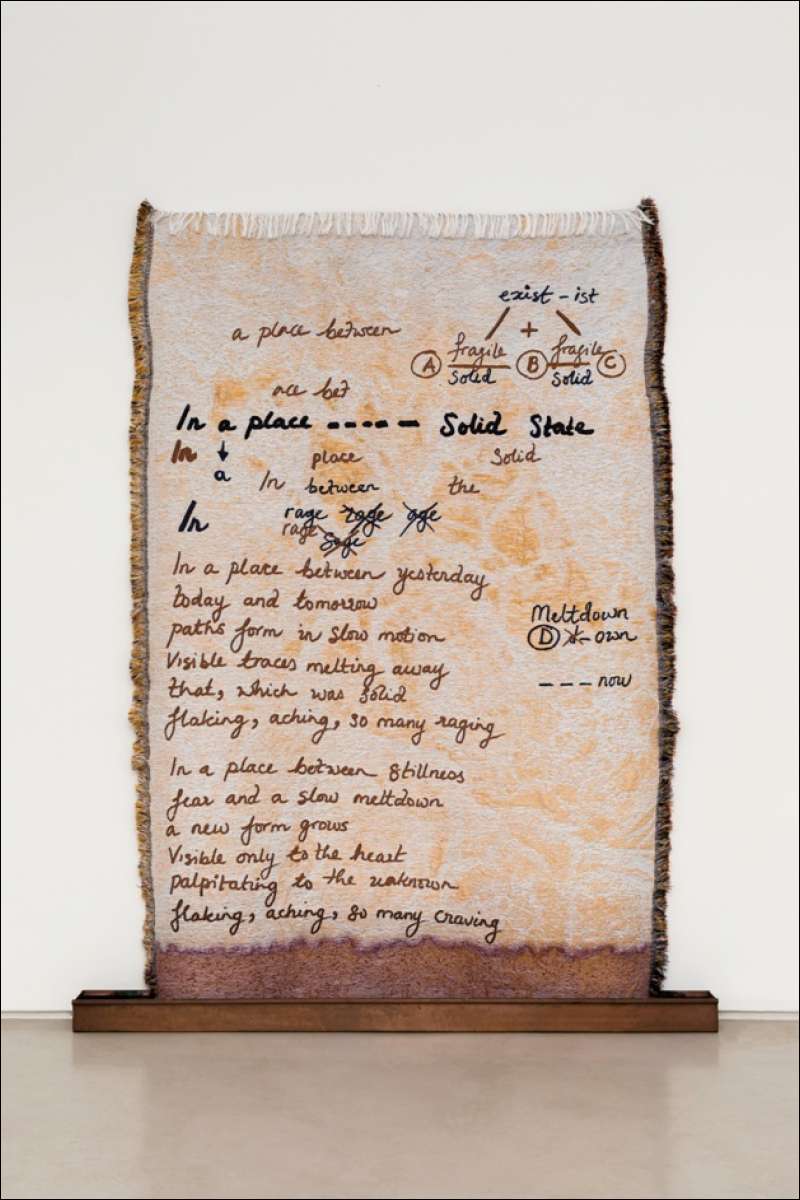 exist - ist
a place between
+
fragile fragile
A B C
Solid Solid
ace bet
In a place ----- Solid State
In ↓ place Solid
a In between the
In rage rage age
rage Sage
In a place between yesterday
today and tomorrow
paths form in slow motion
Visible traces melting away
that, which was solid
flaking, aching, so many raging
Meltdown
D own
--- now
In a place between stillness
fear and a slow meltdown
a new form grows
Visible only to the heart
palpitating to the unknown
flaking, aching, so many craving